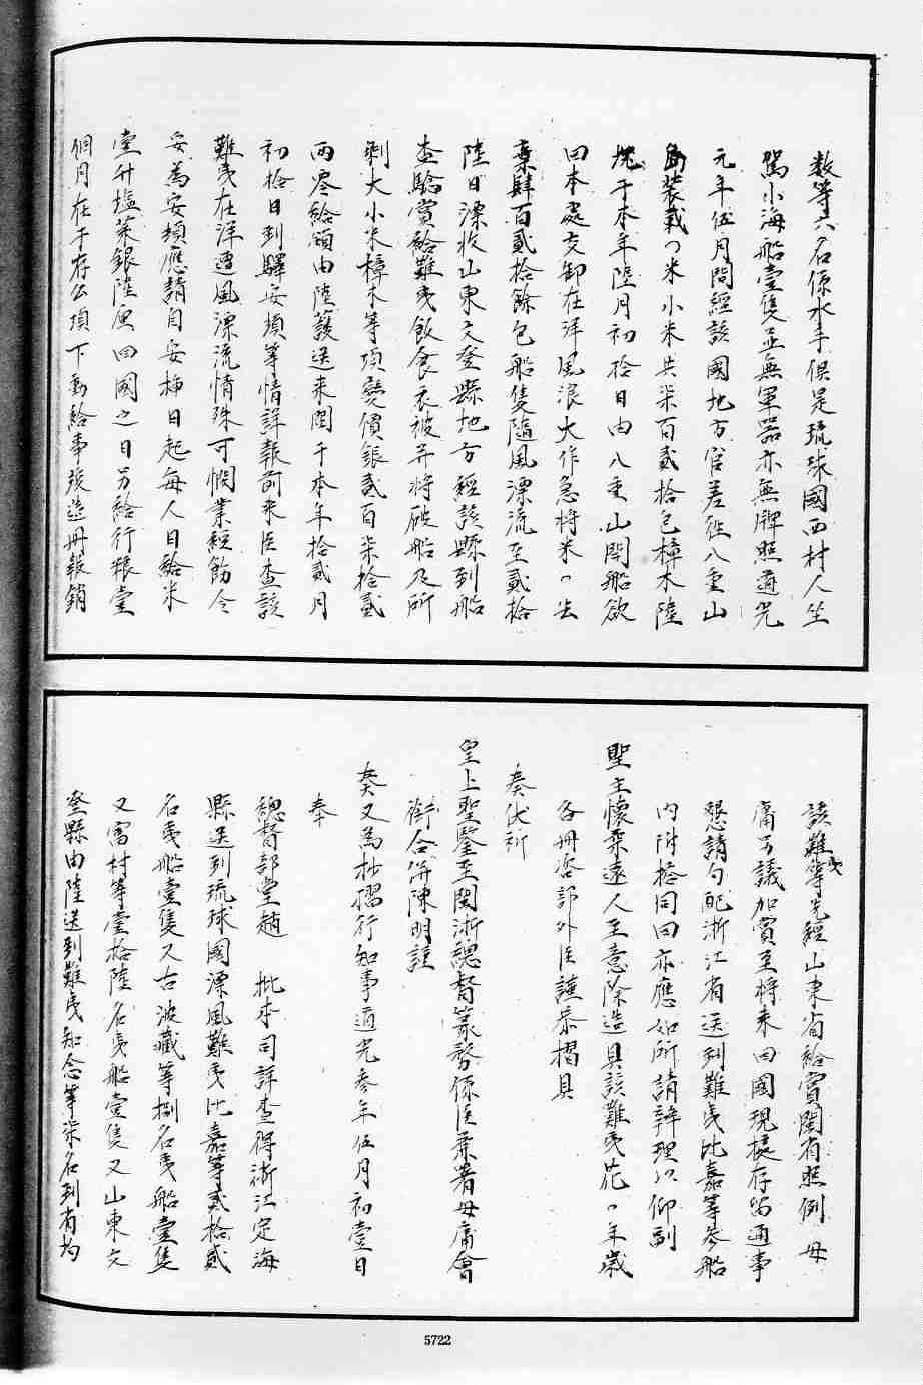 数等六名係水手俱是琉球國西村人坐
駕小海船壹隻並無軍器亦無牌照道光
元年伍月間經該國地方官差徃八重山
島装載大米小米共柒百貳拾包樟木陸
塊于本年陸月初拾日由八重山開船欲
回本處交卸在洋風浪大作急將米々去
棄肆百貳拾餘包船隻隨風漂流至貳拾
陸日漂收山東文登縣地方經該縣到船
查驗賞給難夷飯食衣被并將破船及所
剩大小米樟木等項變價銀貳百柒拾貳
兩零給領由陸護送来閩于本年拾貳月
初拾日到驛安頓等情詳報前来臣查該
難夷在洋遭風漂流情殊可憫業經飭令
妥為安頓應請自安插日起每人日給米
壹升塩菜銀陸厘回國之日另給行粮壹
個月在于存公項下動給事竣造冊報銷
該難夷等先經山東省給賞閩有照例毋
庸另議加賞至將来回國現據存留通事
懇請勻配浙江省送到難夷比嘉等叁船
内附搭同回亦應如所請辦理以仰副
聖主懷柔遠人至意除造具該難夷花々年歲
各冊咨部外臣謹恭摺具
奏伏祈
皇上聖鑒至閩浙總督篆務係臣兼署毋庸會
銜合併陳明謹
奏又為抄摺行知事道光叁年伍月初壹日
奉
總督部堂趙 批本司詳查得浙江定海
縣送到琉球國漂風難夷比嘉等貳拾貳
名夷船壹隻又古波藏等捌名夷船壹隻
又富村等壹拾陸名夷船壹隻又山東文
登縣由陸送到難夷知念等柒名到省均
5722